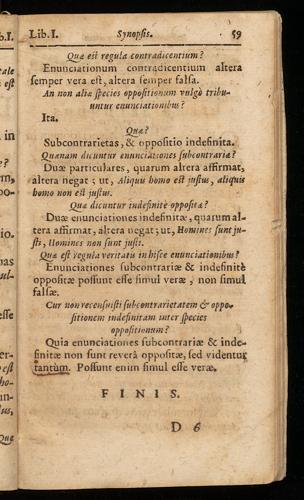 Lib.I. Synopsis. 59
Quæ est regula contradicentium?
Enunciationum contradicentium altera
semper vera est, altera semper falsa.
An non aliæ species oppositionum vulgò tribu-
untur enunciationibus?
Ita.
Quæ?
Subcontrarietas, & oppositio indefinita.
Quænam dicuntur enunciationes subcontrariæ?
Duæ particulares, quarum altera affirmat,
altera negat; ut, Aliquis homo est justus, aliquis
homo non est justus.
Quæ dicuntur indefinitè oppositæ?
Duæ enunciationes indefinitæ, quarum al-
tera affirmat, altera negat; ut, Homines sunt ju-
sti, Homines non sunt justi.
Quæ est regula veritatis in hisce enunciationibus?
Enunciationes subcontrariæ & indefinitè
oppositæ possunt esse simul veræ, non simul
falsæ.
Cur non recensuisti subcontrarietatem & oppo-
sitionem indefinitam inter species
oppositionum?
Quia enunciationes subcontrariæ & inde-
finitæ non sunt reverà oppositæ, sed videntur
tantùm. Possunt enim simul esse veræ.
FINIS.
D 6